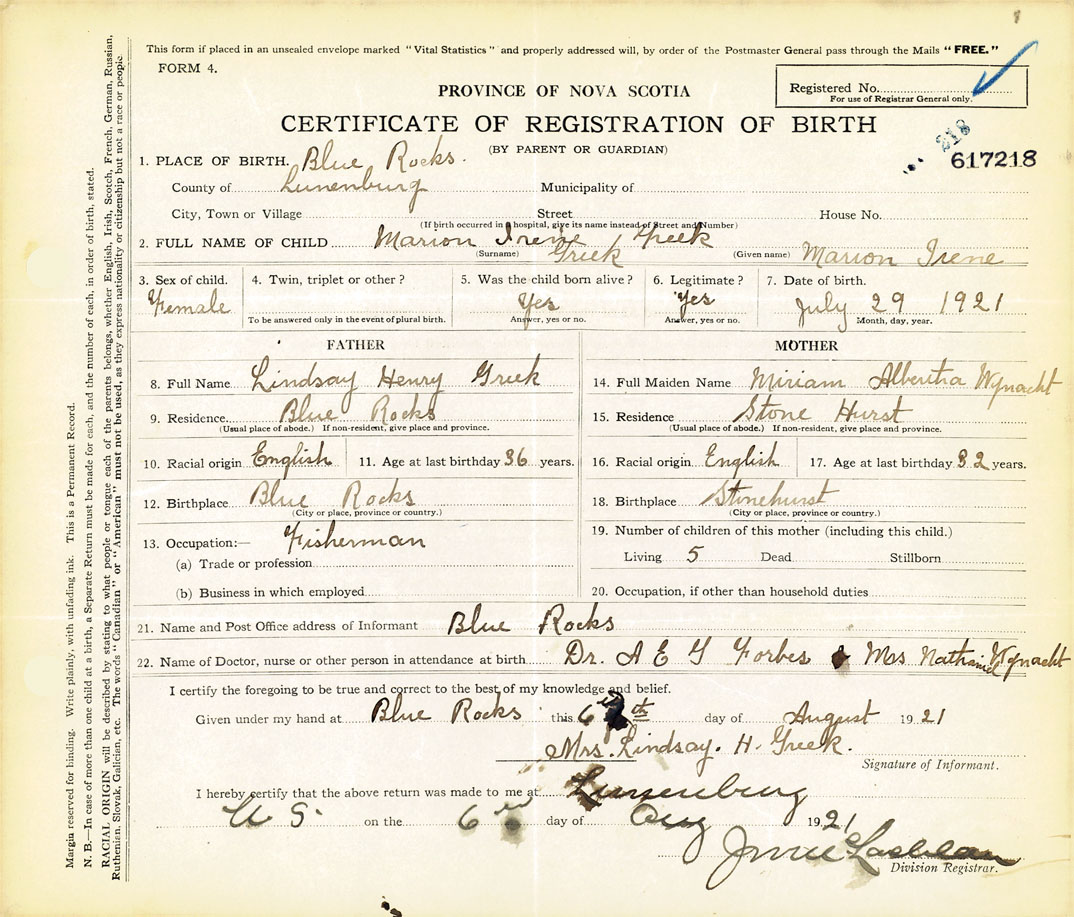 This form if placed in an unsealed envelope marked "Vital Statistics" and properly addressed will, by order of the Postmaster General pass through the Mails "FREE."
FORM 4.
Registered No.
For use of Registrar General only.
PROVINCE OF NOVA SCOTIA
CERTIFICATE OF REGISTRATION OF BIRTH
(BY PARENT OR GUARDIAN)
218
617218
1. PLACE OF BIRTH. Blue Rocks.
County of Lunenburg Municipality of
City, Town or Village Street House No.
(If birth occurred in a hospital, give its name instead of Street and Number)
2. FULL NAME OF CHILD Marion Irene Greek
(Surname) Griek (Given name) Marion Irene
3. Sex of child. 4. Twin, triplet or other? 5. Was the child born alive? 6. Legitimate? 7. Date of birth.
Female Yes Yes July 29 1921
To be answered only in the event of plural birth. Answer, yes or no. Answer, yes or no. Month, day, year.
FATHER
8. Full Name Lindsay Henry Griek
9. Residence Blue Rocks
(Usual place of abode.) If non-resident, give place and province.
10. Racial origin English 11. Age at last birthday 36 years.
12. Birthplace Blue Rocks
(City or place, province or country.)
13. Occupation:— Fisherman
(a) Trade or profession
(b) Business in which employed
MOTHER
14. Full Maiden Name Miriam Albertha Wynacht
15. Residence Stone Hurst
(Usual place of abode.) If non-resident, give place and province.
16. Racial origin English 17. Age at last birthday 32 years.
18. Birthplace Stonehurst
(City or place, province or country.)
19. Number of children of this mother (including this child.)
Living 5 Dead Stillborn
20. Occupation, if other than household duties
21. Name and Post Office address of Informant Blue Rocks
22. Name of Doctor, nurse or other person in attendance at birth Dr. A E G Forbes & Mrs Nathaniel Wynacht
I certify the foregoing to be true and correct to the best of my knowledge and belief.
Given under my hand at Blue Rocks this 6th day of August 1921
Mrs. Lindsay. H. Greek.
Signature of Informant.
I hereby certify that the above return was made to me at Lunenburg
N S on the 6 day of Aug 1921
Division Registrar.
Margin reserved for binding. Write plainly, with unfading ink. This is a Permanent Record.
N. B.—In case of more than one child at a birth, a Separate Return must be made for each, and the number of each, in order of birth, stated.
RACIAL ORIGIN will be described by stating to what people or tongue each of the parents belongs, whether English, Irish, Scotch, French, German, Russian,
Ruthenian, Slovak, Galician, etc. The words "Canadian" or "American" must not be used, as they express nationality or citizenship but not a race or people.